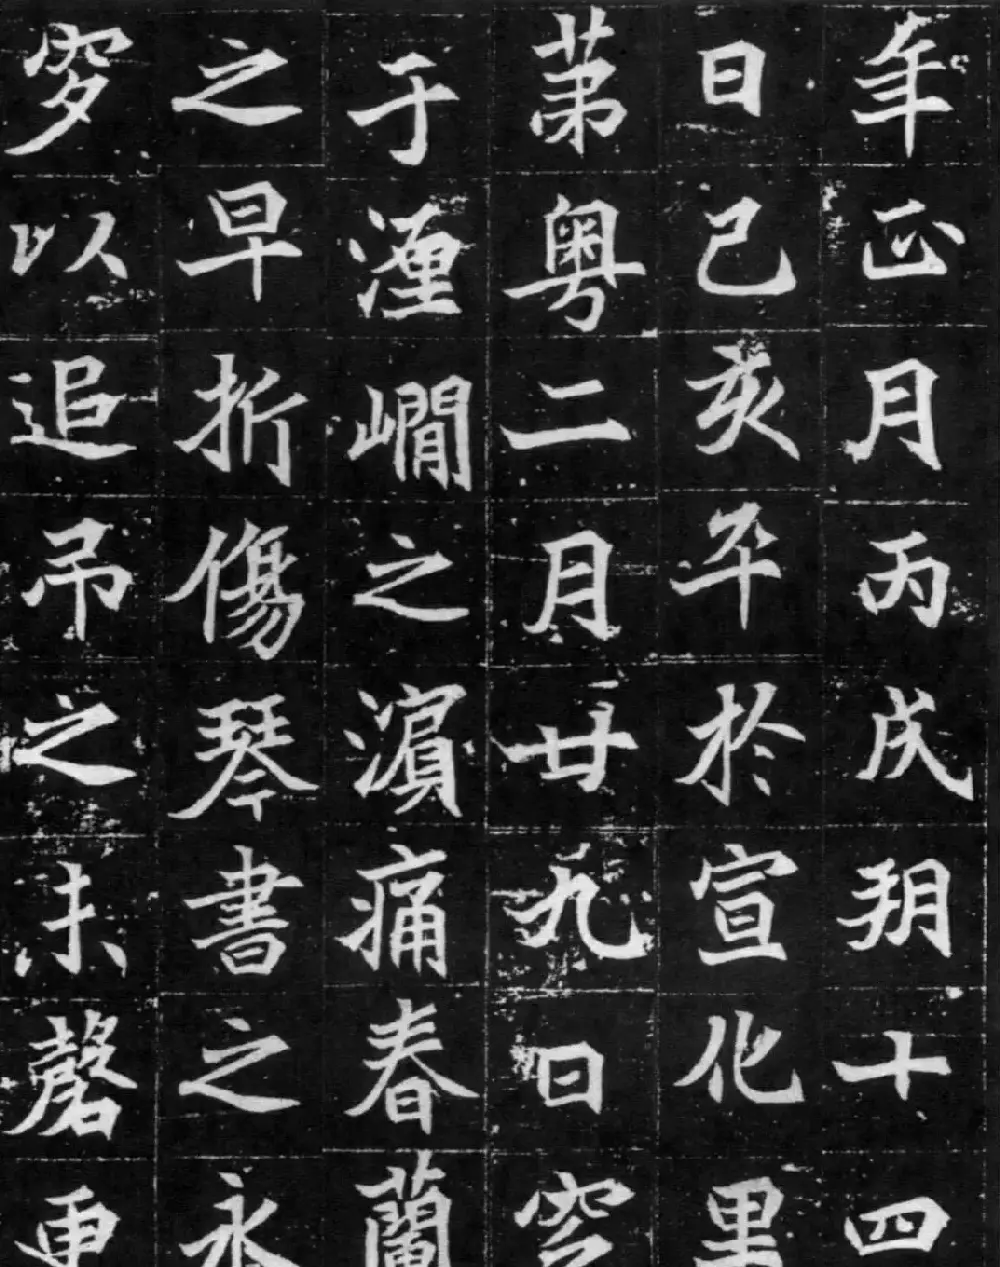 年正月丙戌朔十四
日己亥卒於宣化里
苐粤二月廿九日窆
于瀍㠜之濵痛春蘭
之早折傷琴書之永
穸以追吊之未罄更